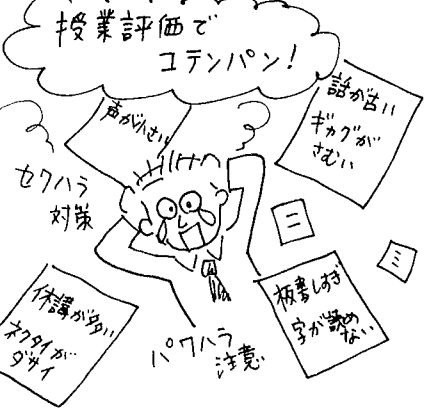 授業評価で
コテンパン!
声が小さい
話が古い
ギャグが
さむい
セクハラ
対策
二
三
休講が多い
ネクタイが
ダサイ
パワハラ
注意
板書しすぎ
字が読め
ない